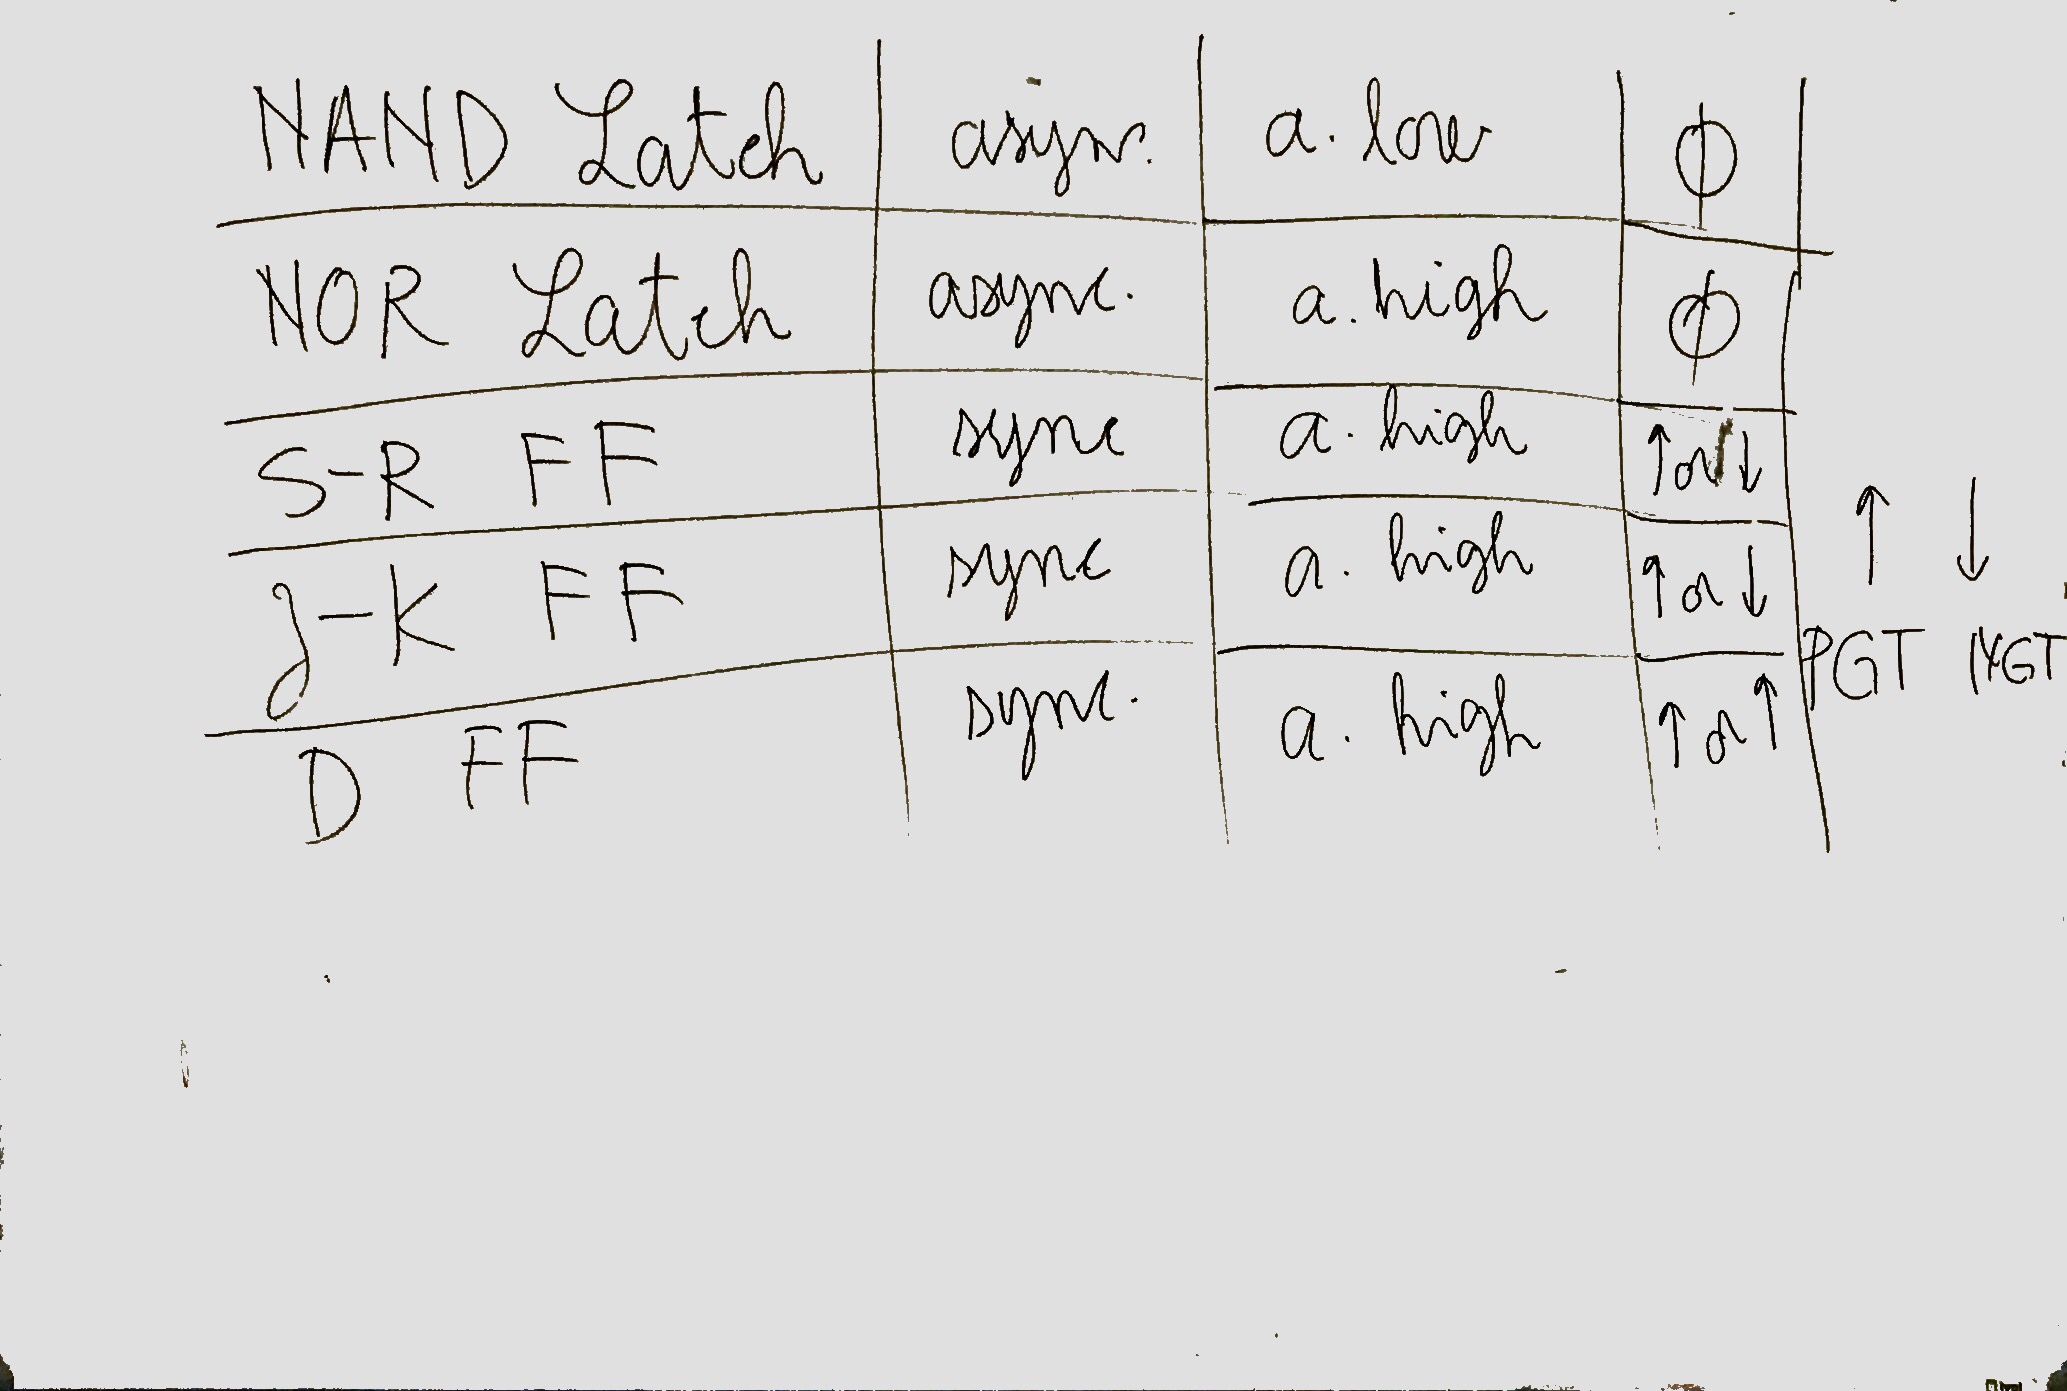 NAND Latch asyn. a. low ϕ
NOR Latch async. a. high ϕ
S-R FF sync a. high ↑ or ↓
J-K FF sync a. high ↑ or ↓
↑ ↓
PGT NGT
D FF sync. a. high ↑ or ↑